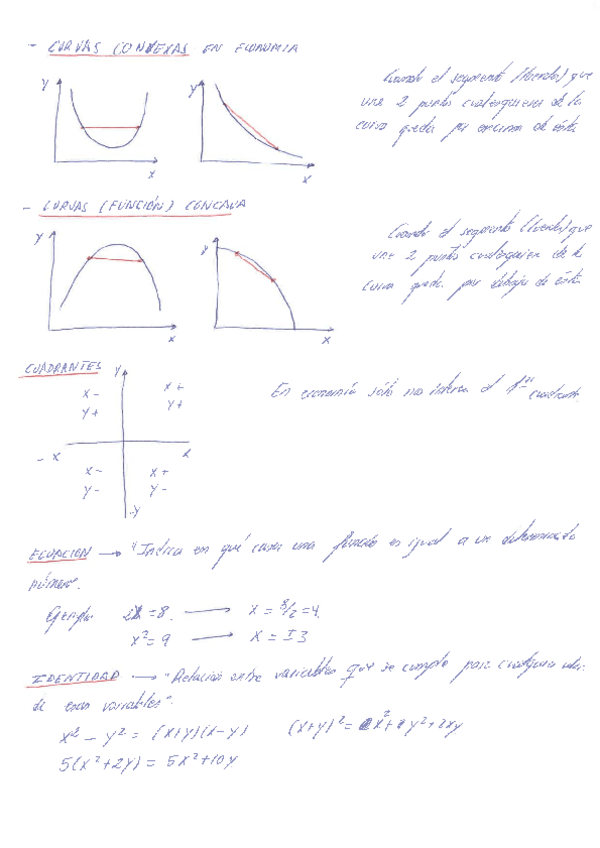 - CURVAS CONVEXAS EN ECONOMIA
Cuando el segmento (cuerda) que
une 2 puntos cualesquiera de la
curva queda por encima de ésta
Y
X
Y
X
- CURVAS (FUNCIÓN) CONCAVA
Cuando el segmento (cuerda) que
une 2 puntos cualesquiera de la
curva queda por debajo de ésta
Y
X
Y
X
CUADRANTES
Y
X - X +
Y + Y +
En economía sólo nos interesa el 1er cuadrante
- X X
X - X +
Y - Y -
-Y
ECUACION → "Indica en qué casos una función es igual a un determinado
número".
Ejemplo 2X = 8 → X = 8/2 = 4.
X² = 9 → X = ±3
IDENTIDAD → "Relación entre variables que se cumple para cualquier valor
de esas variables".
X² - Y² = (X+Y)(X-Y) (X+Y)² = X² + Y² + 2XY
5(X² + 2Y) = 5X² + 10Y